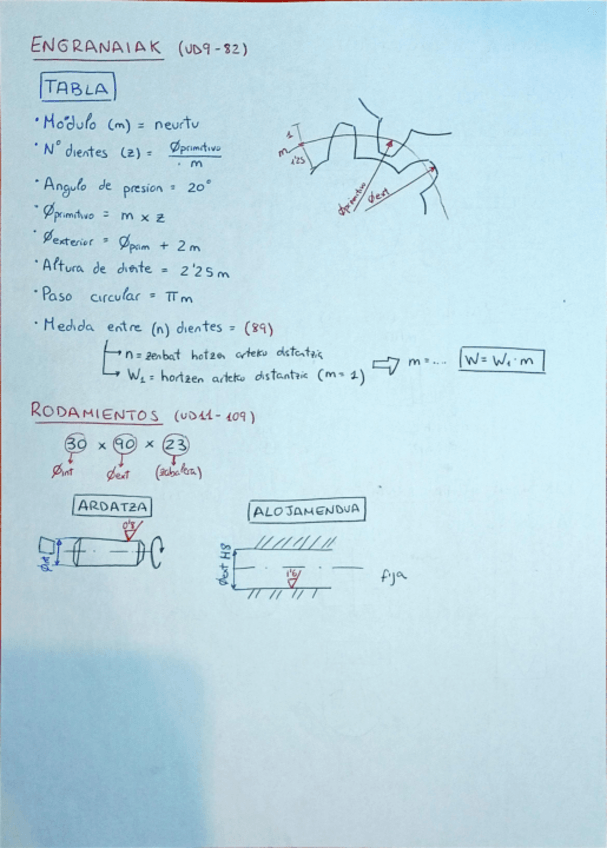 ENGRANAIAK (UD9-82)
TABLA
• Modulo (m) = neurtu
• Nº dientes (z) = Øprimitivo / m
• Angulo de presion = 20°
• Øprimitivo = m x z
• Øexterior = Øprim + 2m
• Altura de diente = 2'25m
• Paso circular = πm
• Medida entre (n) dientes = (89)
n = zenbat hotzen arteko distantzia
W1 = hortzen arteko distantzia (m=1)
m = .... W = W1 · m
1
m
1'25
Øprimitivo
Øext
RODAMIENTOS (UD11-109)
30 x 90 x 23
Øint Øext (zabalera)
ARDATZA
0'8
Øint
ALOJAMENDUA
Øext H8
1'6
fija